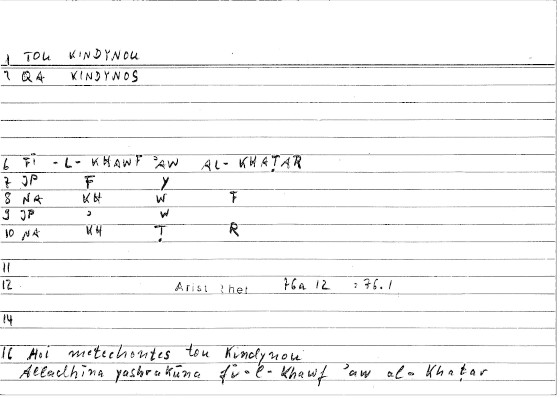 1 TOU KINDYNOU
2 QA KINDYNOS
6 FĪ -L- KHAWF ʾAW AL- KHAṬAR
7 JP F Y
8 NA KH W F
9 JP ʾ W
10 NA KH Ṭ R
11
12 Arist rhet 76a 12 : 76.1
14
16 Hoi metechontes tou Kindynou
Alladhīna yashrakūna fī-l-Khawf ʾaw al-Khaṭar